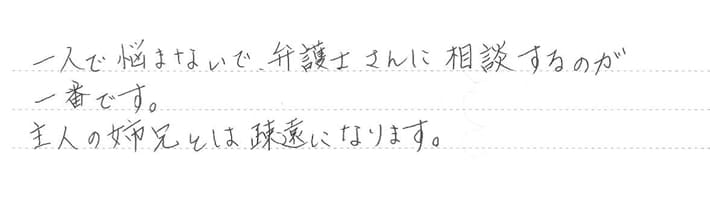 一人で悩まないで、弁護士さんに相談するのが
一番です。
主人の姉兄とは疎遠になります。